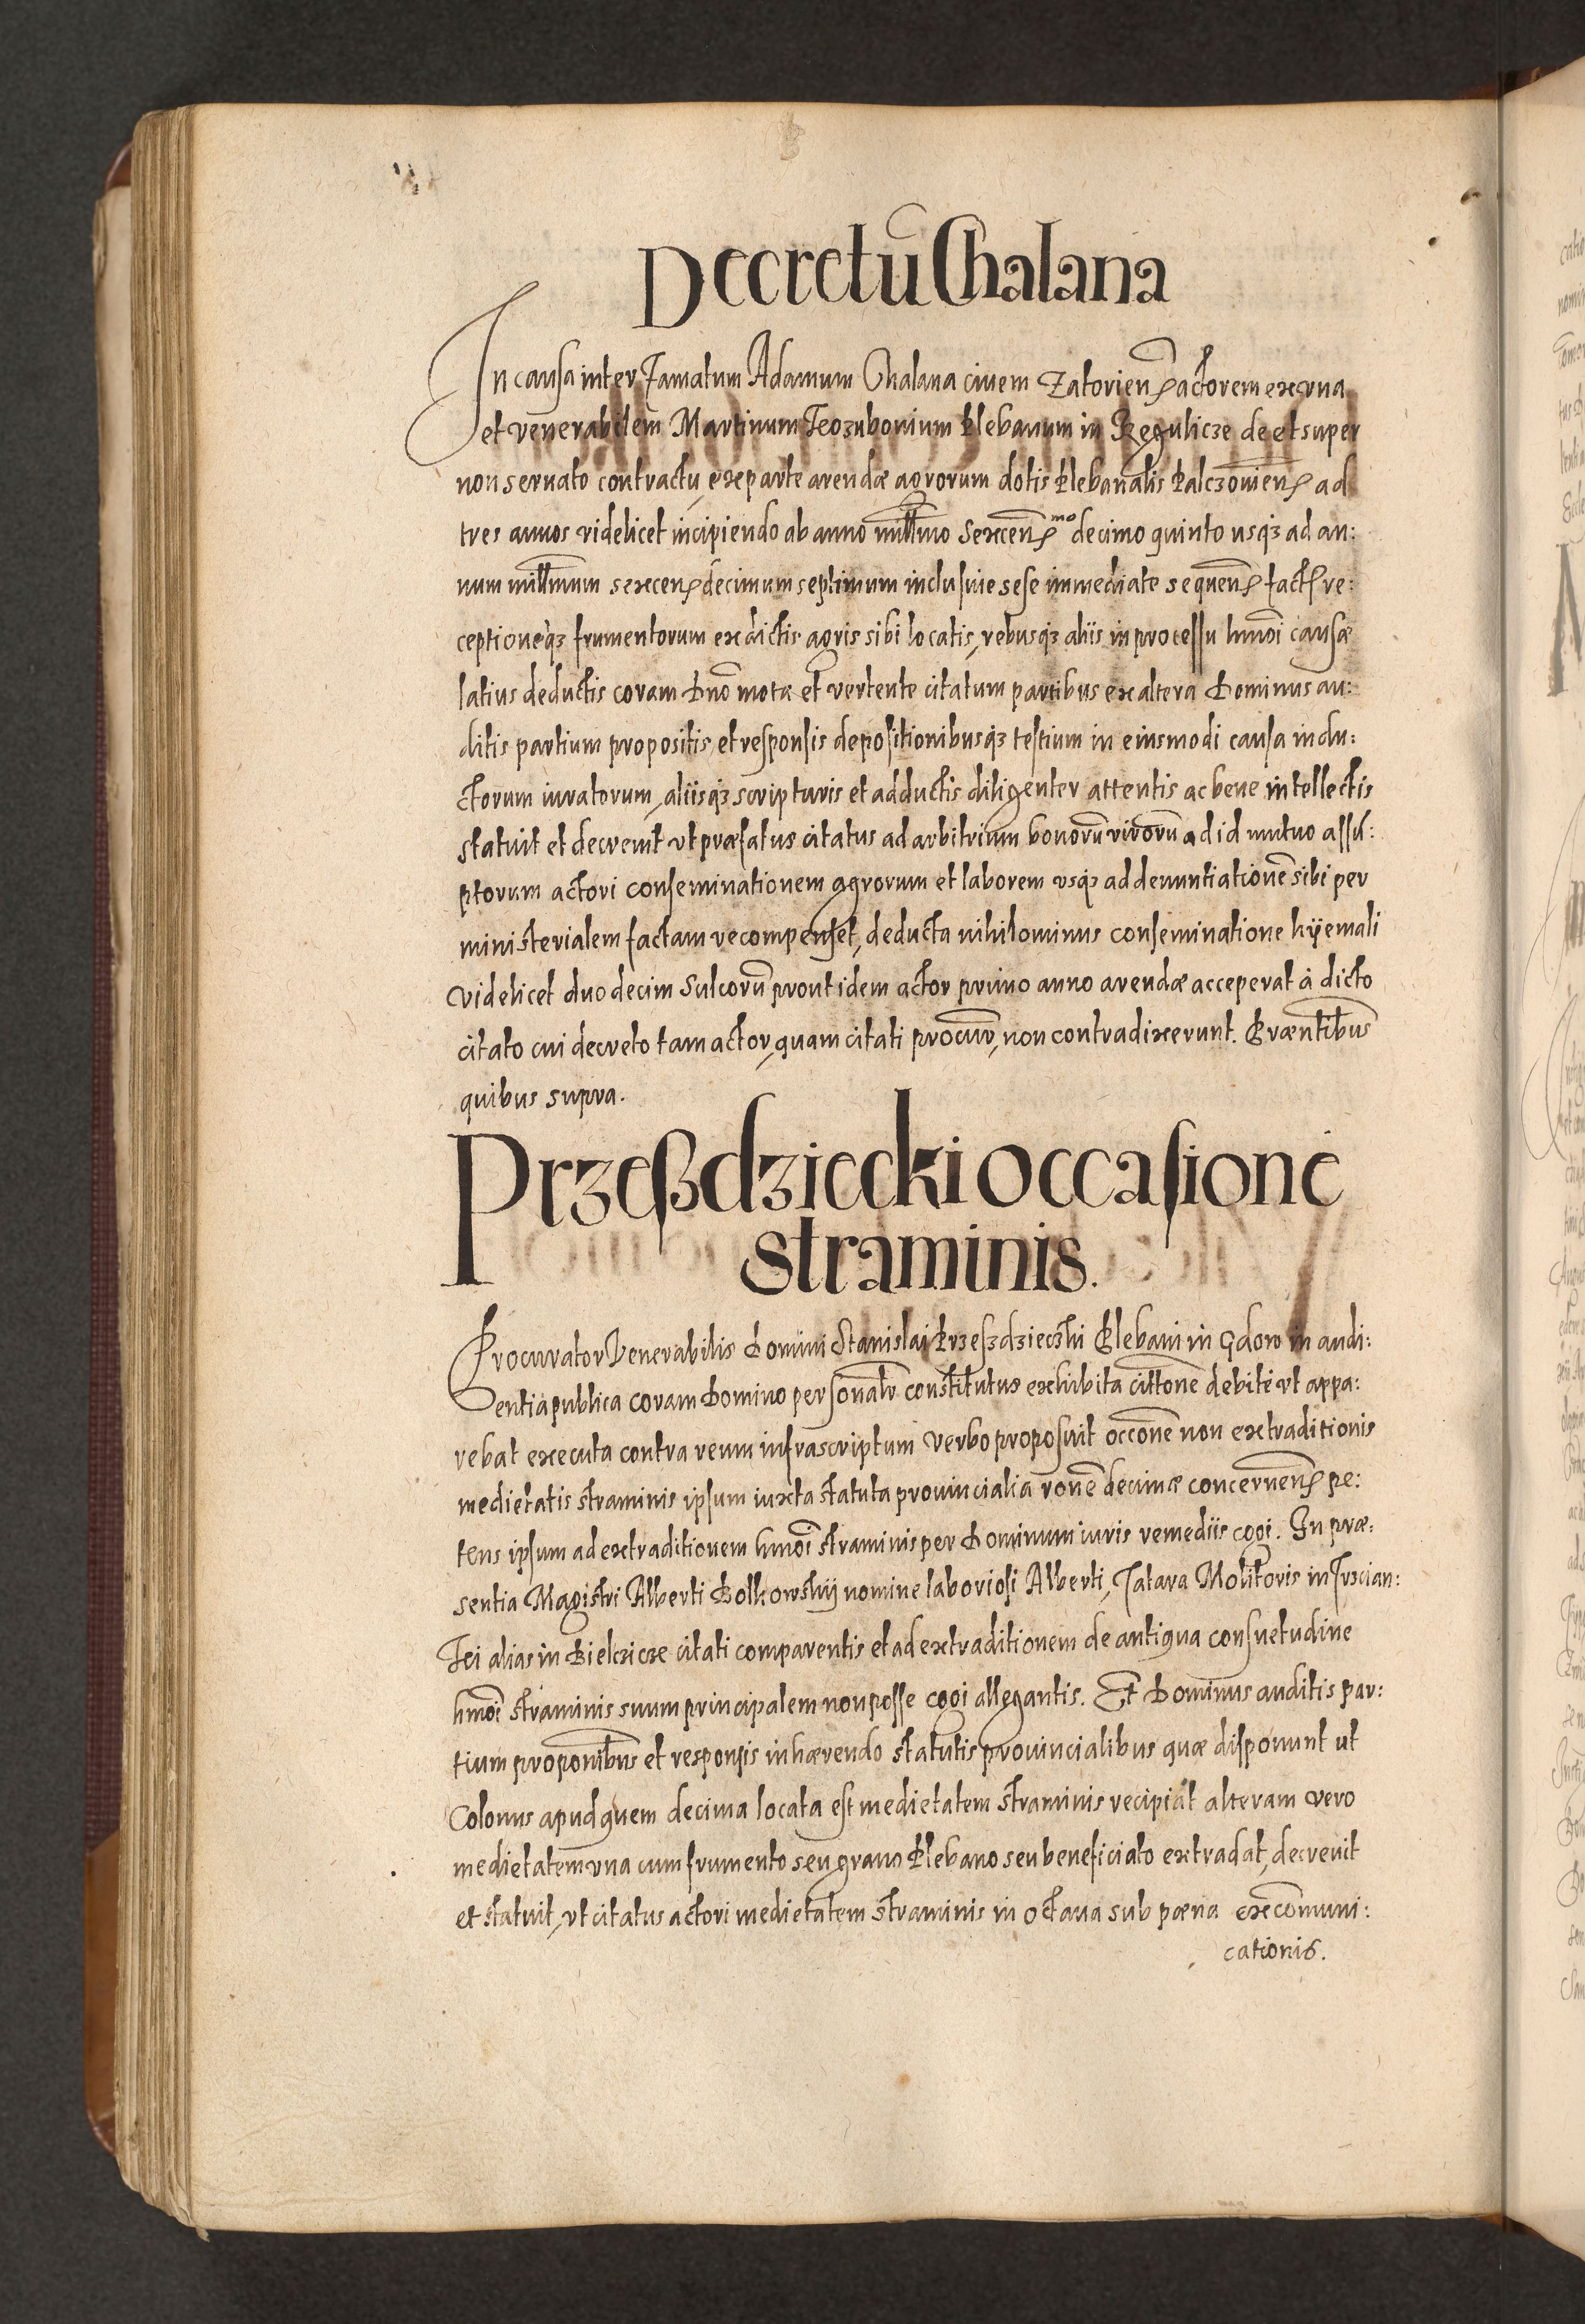 Decretū Chalana
In causa inter Famatum Adamum Chalana ciuem Zatorien̄ actorem ex vna
et venerabilem Martinum Teozubonium Plebanum in Regulicze de et super
non seruato contractu, ex parte arendæ agrorum dotis Plebanalis Palczouien̄ ad
tres annos videlicet incipiendo ab anno millmo Sexcen̄mo decimo quinto usq3 ad an:
num millmum sexcen̄ decimum septimum inclusiue sese immediate sequen̄ fact re:
ceptioneq3 frumentorum ex dictis agris sibi locatis, rebusq3 aliis in processu hmōi causæ
latius deductis coram Dnō mota et vertente citatum partibus ex altera Dominus au:
ditis partium propositis, et responsis depositionibusq3 testium in eiusmodi causa indu:
ctorum iuratorum, aliisq3 scripturis et adductis diligenter attentis ac bene intellectis
statuit et decreuit vt præfatus citatus ad arbitrium bonorū virorū ad id mutuo assū:
ptorum actori conseminationem agrorum et laborem vsq3 ad denuntiationē sibi per
ministerialem factam recompenset, deducta nihilominus conseminatione hÿemali
videlicet duodecim Sulcorū prout idem actor primo anno arendæ acceperat à dicto
citato cui decreto tam actor, quam citati procur̄, non contradixerunt. Præntibus
quibus supra.
Przeßdziecki occasione
straminis.
Procurator Venerabilis Domini Stanislai Przeszdzieczki Plebani in Gdow in audi:
entia publica coram Domino personalr̄ constitutus exhibita cittone debitè vt appa:
rebat executa contra reum infrascriptum verbo proposuit occōne non extraditionis
medietatis straminis ipsum iuxta statuta prouincialia rōne decimæ concernen̄ pe:
tens ipsum ad extraditionem hmōi straminis per Dominum iuris remediis cogi. In præ:
sentia Magistri Alberti Bolkowskÿ nomine laboriosi Alberti, Tatara Molitoris in Trzcian:
Fei alias in Bielczicze citati comparentis et ad extraditionem de antiqua consuetudine
hmōi straminis suum principalem non posse cogi allegantis. Et Dominus auditis par:
tium proponibus et responsis inhærendo statutis prouincialibus quæ disponunt ut
Colonus apud quem decima locata est medietatem straminis recipiat alteram vero
medietatem vna cum frumento seu grano Plebano seu beneficiato extradat, decreuit
et statuit, vt citatus actori medietatem straminis in octaua sub pæna excōmuni:
cationis.